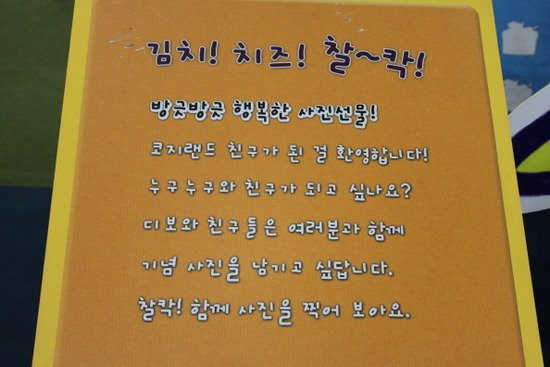 김치! 치즈! 찰~칵!
방긋방긋 행복한 사진선물!
코지랜드 친구가 된 걸 환영합니다!
누구누구와 친구가 되고 싶나요?
디보와 친구들은 여러분과 함께
기념 사진을 남기고 싶답니다.
찰칵! 함께 사진을 찍어 보아요.